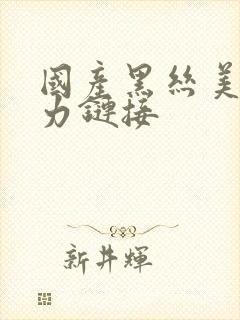 國產黑絲美
力鏈接
新井輝